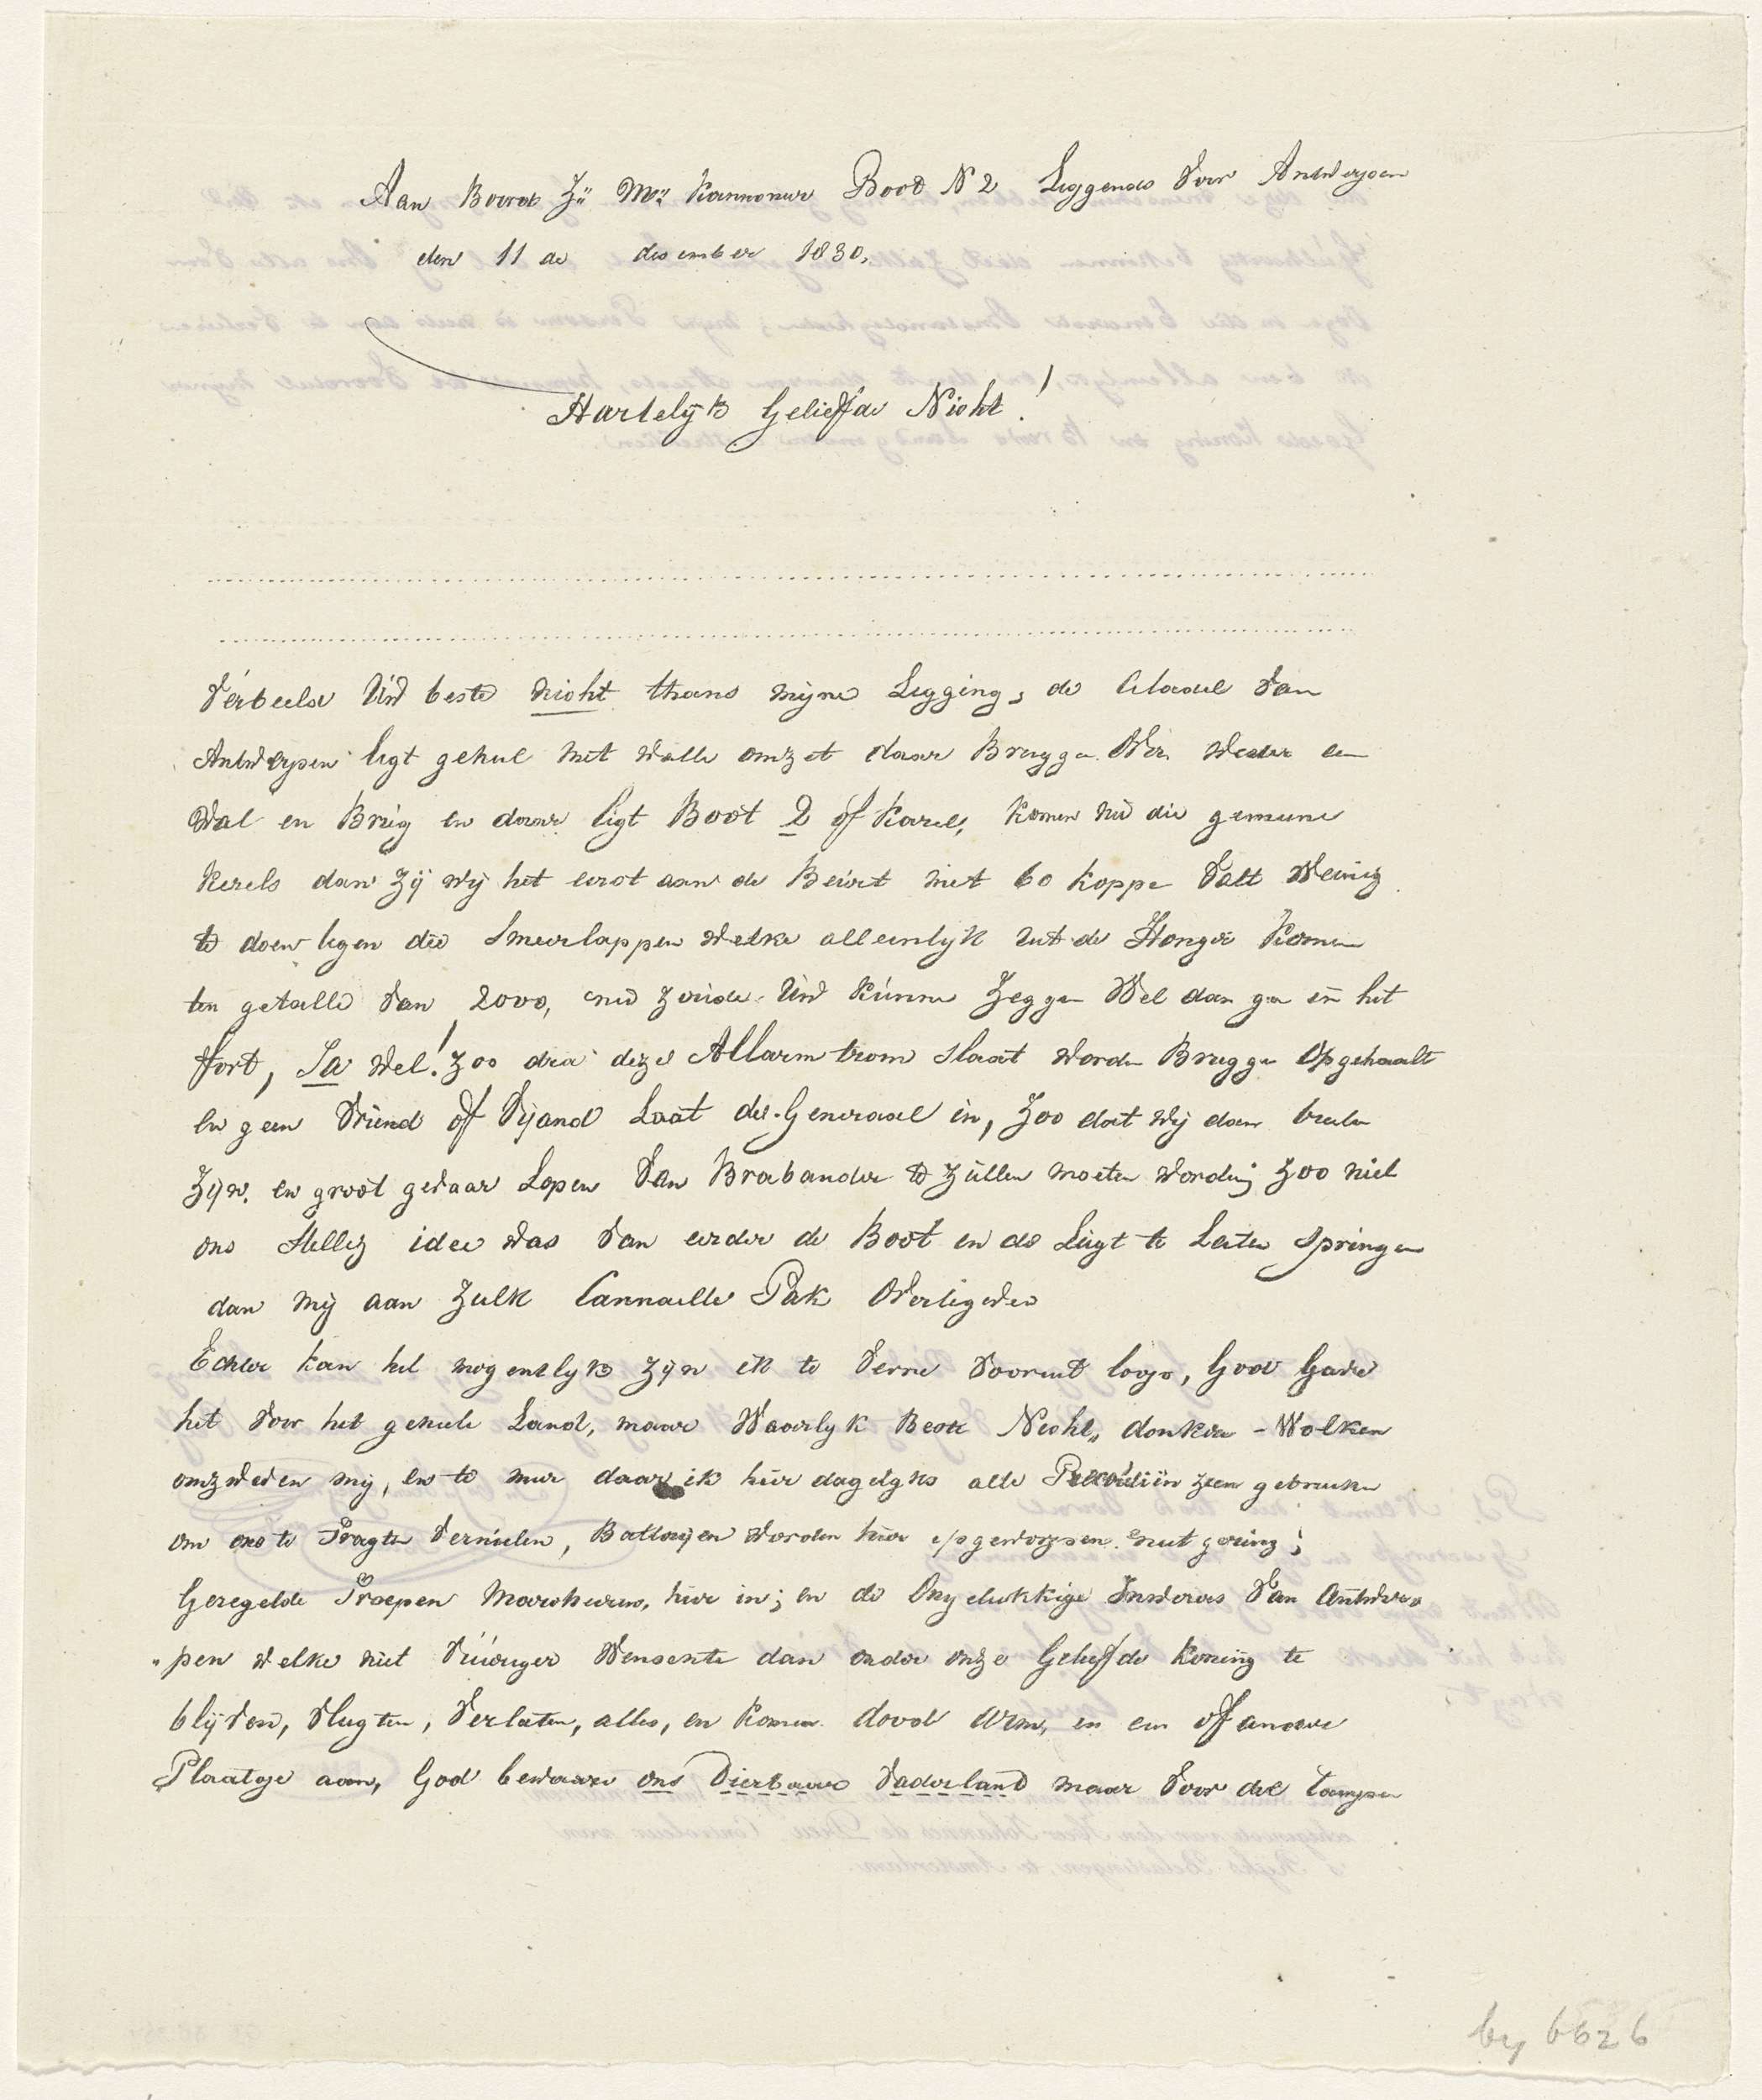 Aan Boord Zyn Mts Kannoneer Boot N 2 Leggende Voor Antwerpen
den 11 de desember 1830,
Hartelyk Geliefde Nicht!
Verbeelde UW beste nicht thans mijne Legging, de Citadel Van
Antwerpen ligt geheel met Walle omzet daar Brugge Over Weder een
Wal en Brug en daar ligt Boot 2 of Karel, Komen nu die gemeene
Kerels dan Zij Wij het eerst aan de Beurt met 60 Koppe Valt Weinig
te doen tegen die Smeerlappen Welke alleenlijk uit de Honger Komen
ten getalle Van 2000, nu Zoude UW Kunne Zegge Wel dan ga in het
Fort, Ja Wel! Zoo dra deze Allarm trom Slaat Worden Brugge Opgehaalt
En geen Vriend of Vijand Laat de Generaal in, Zoo dat Wij dan buiten
Zijn. en groot gevaar Lopen Van Brabander te Zullen moeten Worden Zoo niet
ons Stellig idee Was Van eerder de Boot in de Lugt te Laten Springen
dan mij aan Zulk Cannaille Pak Overtegeven
Echter kan het mogentlyk Zyn ik te Verre Vooruit loop, God Gave
het Voor het geheele Land, maar Waarlyk Beste Nicht, donkere - Wolken
omzweven mij, en te meer daar ik hier dagelyks alle Perfidiën zien gebruiken
om ons te Tragten Vernielen, Batterijen Worden hier opgeworpen met
Geregelde Troepen Marcheeren, hier in; en de Ongelukkige Inwoners Van Antwer
"pen Welke niet Vuuriger Wenschte dan onder onze Geliefde Koning te
blijven, Vlugten, Verlaten, alles, en Komen dood Arm, in een of andere
Plaatsje aan, God beware ons Dierbaare Vaderland maar Voor de rampen
by 6626